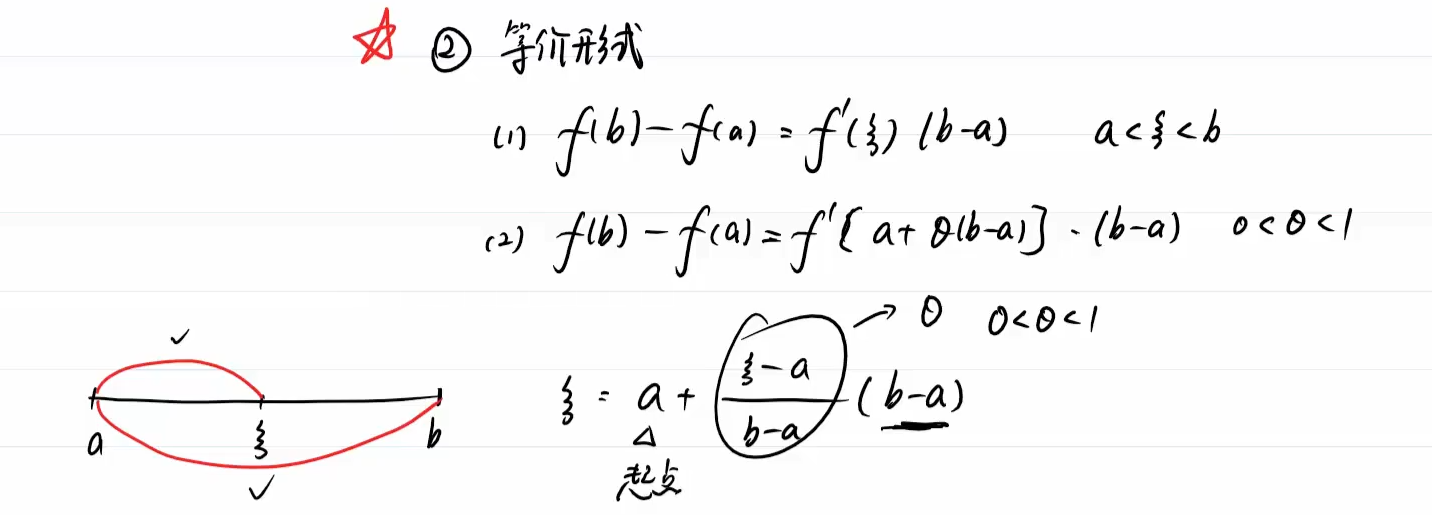 ② 等价形式
(1) f(b)-f(a) = f'(ξ) (b-a) a<ξ<b
(2) f(b)-f(a) = f'[a+θ(b-a)]·(b-a) 0<θ<1
→ θ 0<θ<1
ξ = a + (ξ-a)/(b-a) (b-a)
△
起点
✓
a ξ b
✓